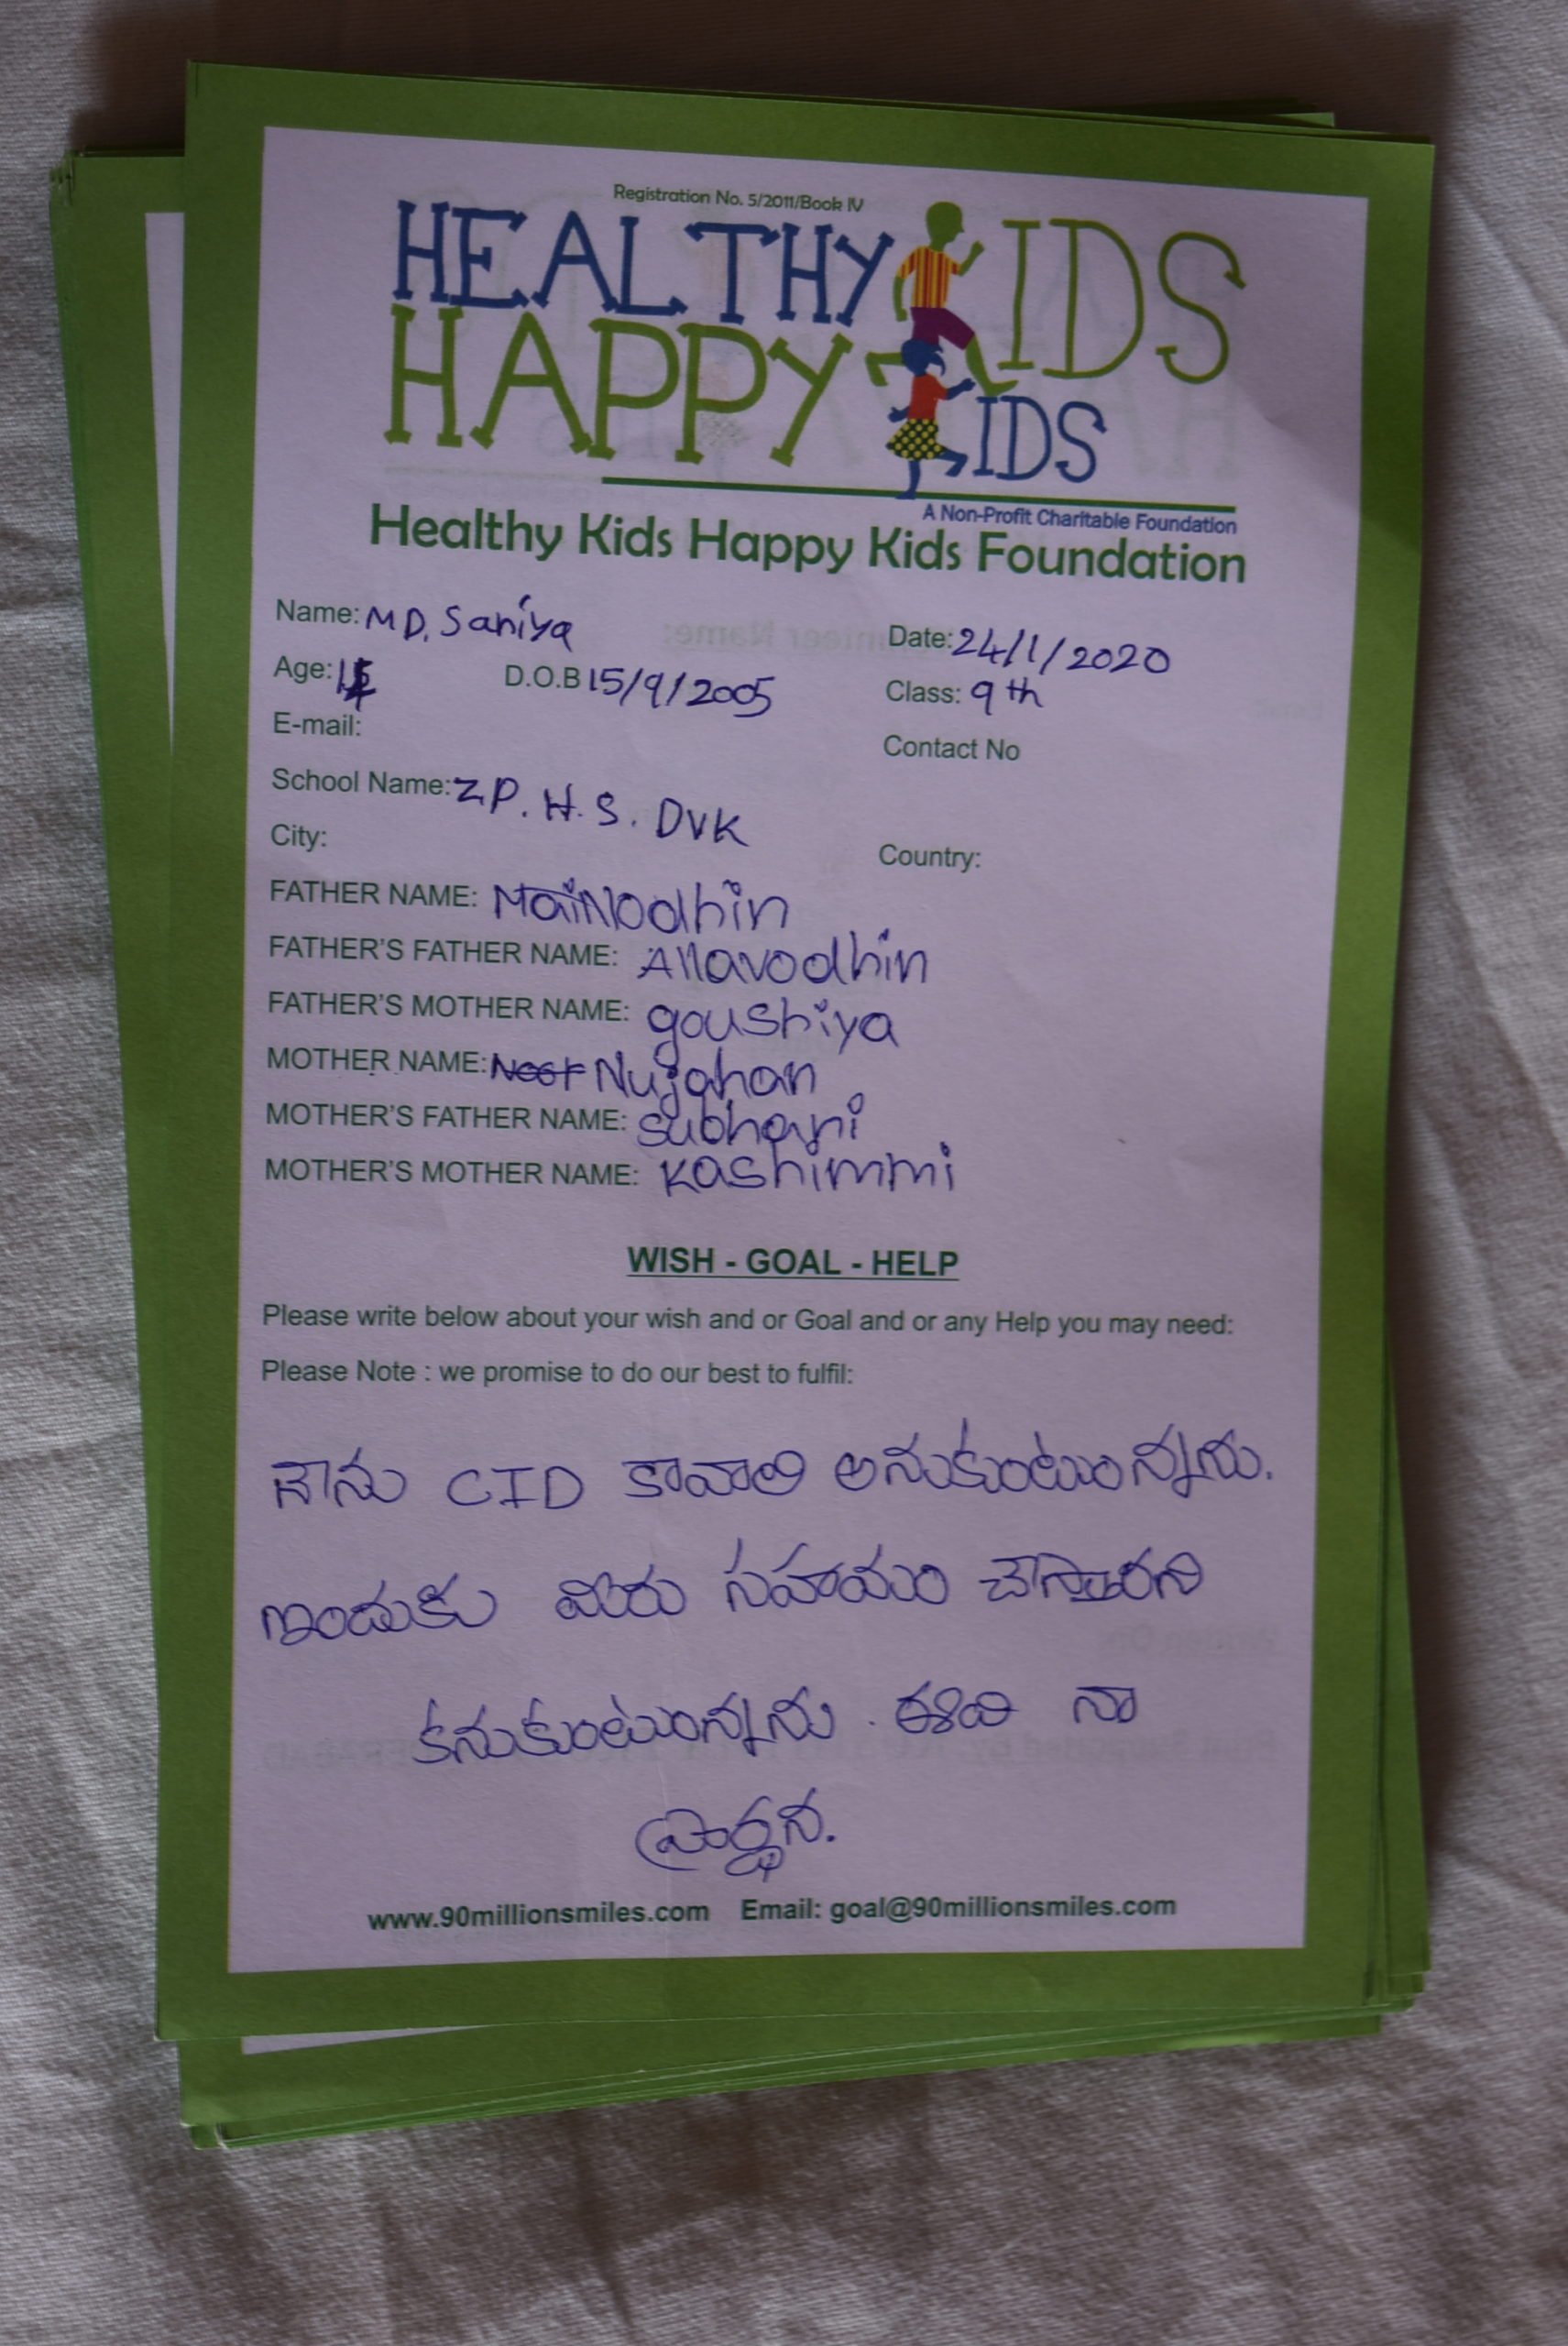 Registration No. 5/2011/Book IV
HEALTHY KIDS
HAPPY KIDS
A Non-Profit Charitable Foundation
Healthy Kids Happy Kids Foundation
Name: MD. Saniya Date: 24/1/2020
Age: D.O.B 15/9/2005 Class: 9th
E-mail: Contact No
School Name: Z.P. H. S. DVK
City: Country:
FATHER NAME: MaiNodhin
FATHER'S FATHER NAME: Allavodhin
FATHER'S MOTHER NAME: goushiya
MOTHER NAME: Nujahan
MOTHER'S FATHER NAME: subhani
MOTHER'S MOTHER NAME: kashimmi
WISH - GOAL - HELP
Please write below about your wish and or Goal and or any Help you may need:
Please Note : we promise to do our best to fulfil:
నౌను CID కావాలి అనుకుంటుంన్నాను.
ఇందుకు మీరు సహాయం చేస్తారని
కనుకుంటుంన్నాను. ఈది నా
ప్రార్థన.
www.90millionsmiles.com Email: goal@90millionsmiles.com